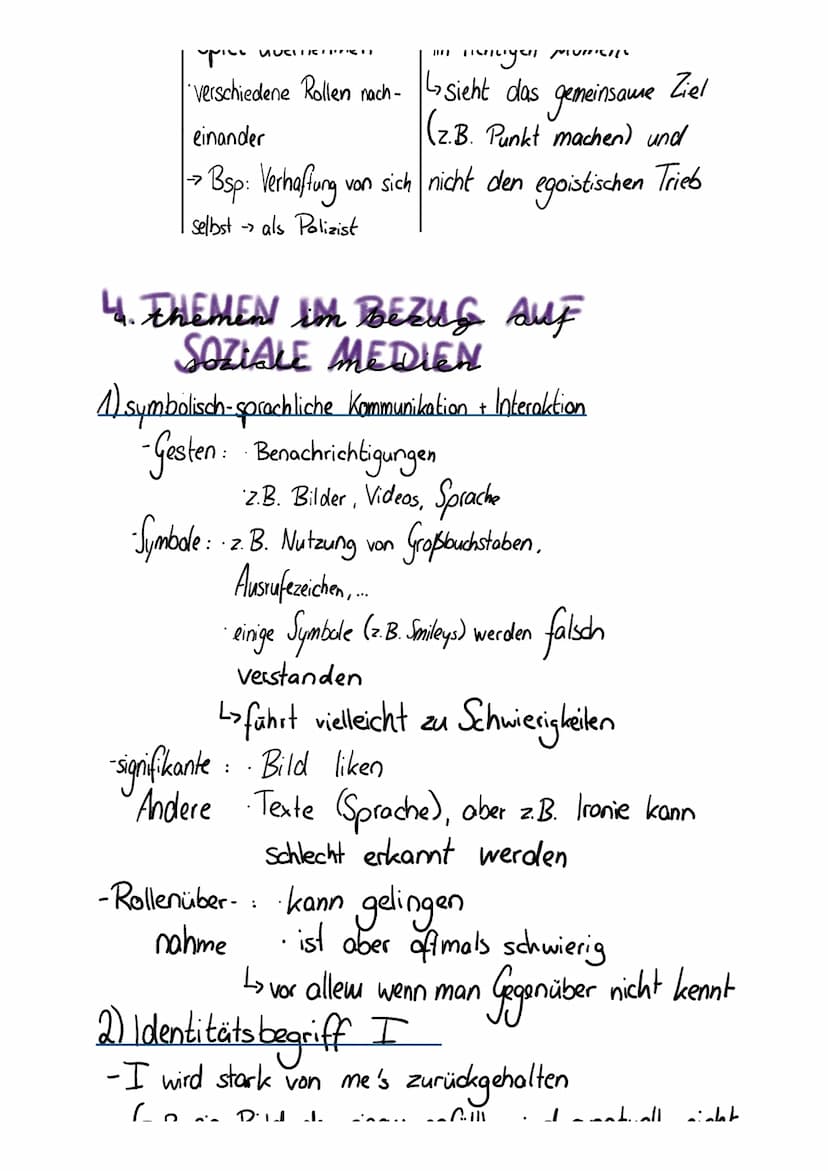 verschiedene Rollen nach-
einander
→ Bsp: Verhaftung von sich
selbst → als Polizist
im richtigen Moment
↳ sieht das gemeinsame Ziel
(z.B. Punkt machen) und
nicht den egoistischen Trieb
4. THEMEN IM BEZUG AUF
SOZIALE MEDIEN
1) symbolisch-sprachliche Kommunikation + Interaktion
- Gesten: · Benachrichtigungen
· z.B. Bilder, Videos, Sprache
- Symbole: · z.B. Nutzung von Großbuchstaben,
Ausrufezeichen, ...
· einige Symbole (z.B. Smileys) werden falsch
verstanden
↳ führt vielleicht zu Schwierigkeiten
- signifikante : · Bild liken
Andere · Texte (Sprache), aber z.B. Ironie kann
schlecht erkannt werden
- Rollenüber- : · kann gelingen
nahme · ist aber oftmals schwierig
↳ vor allem wenn man Gegenüber nicht kennt
2) Identitätsbegriff I
- I wird stark von me's zurückgehalten